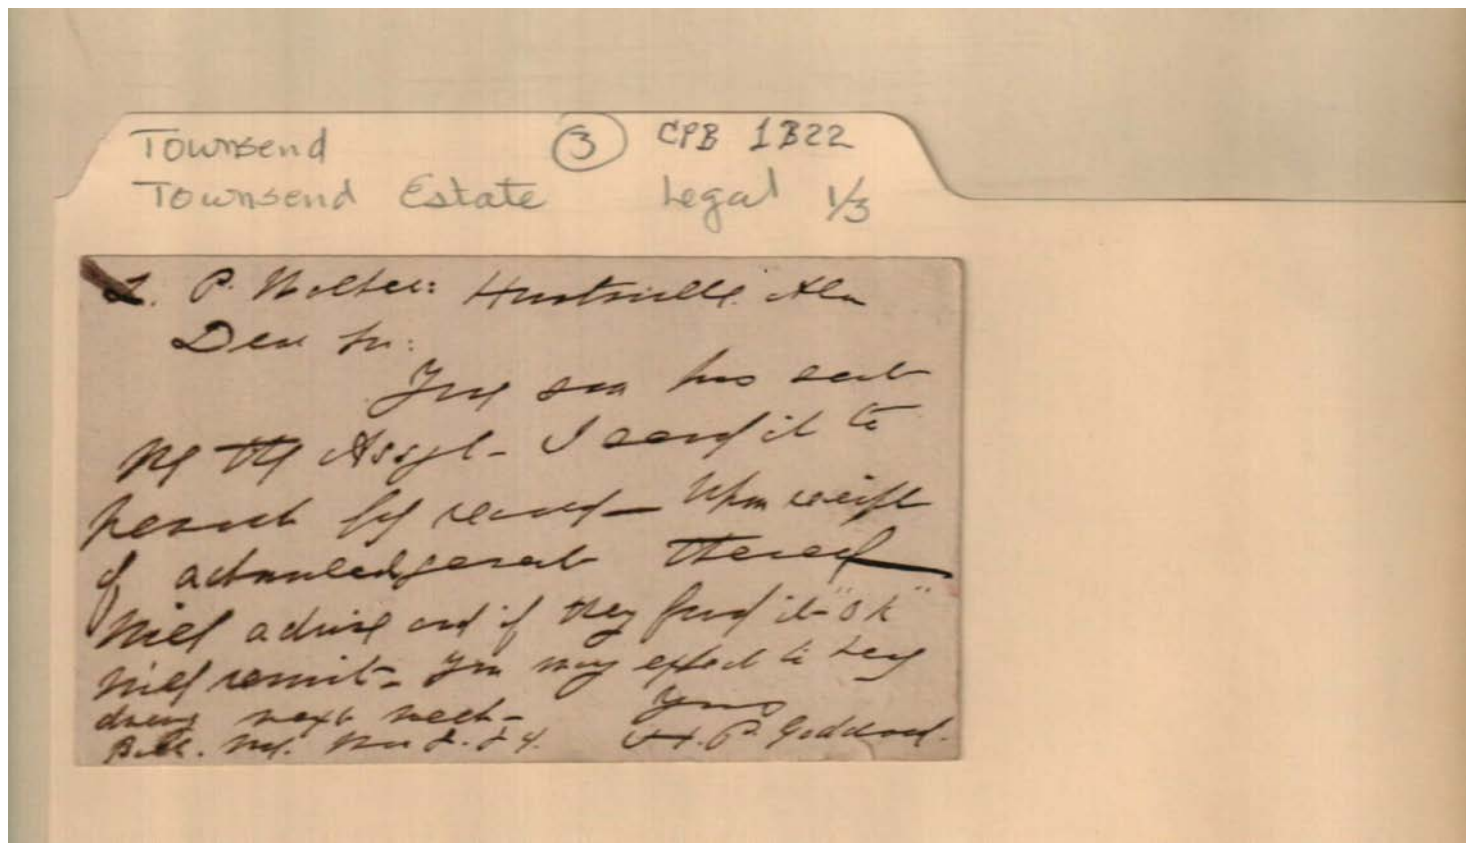 Townsend ③ CPB 1B22
Townsend Estate Legal 1/3
L. P. Walker: Huntsville. Ala
Dear Sir:
Your son has sent
me the Assgt - I send it to
for record - Upon receipt
of acknowledgement thereof
Will advise and if they find it "O K"
Will remit - You may expect to hear
during next week -
Balt. Md. 84. Yours
H. P. Goddard.